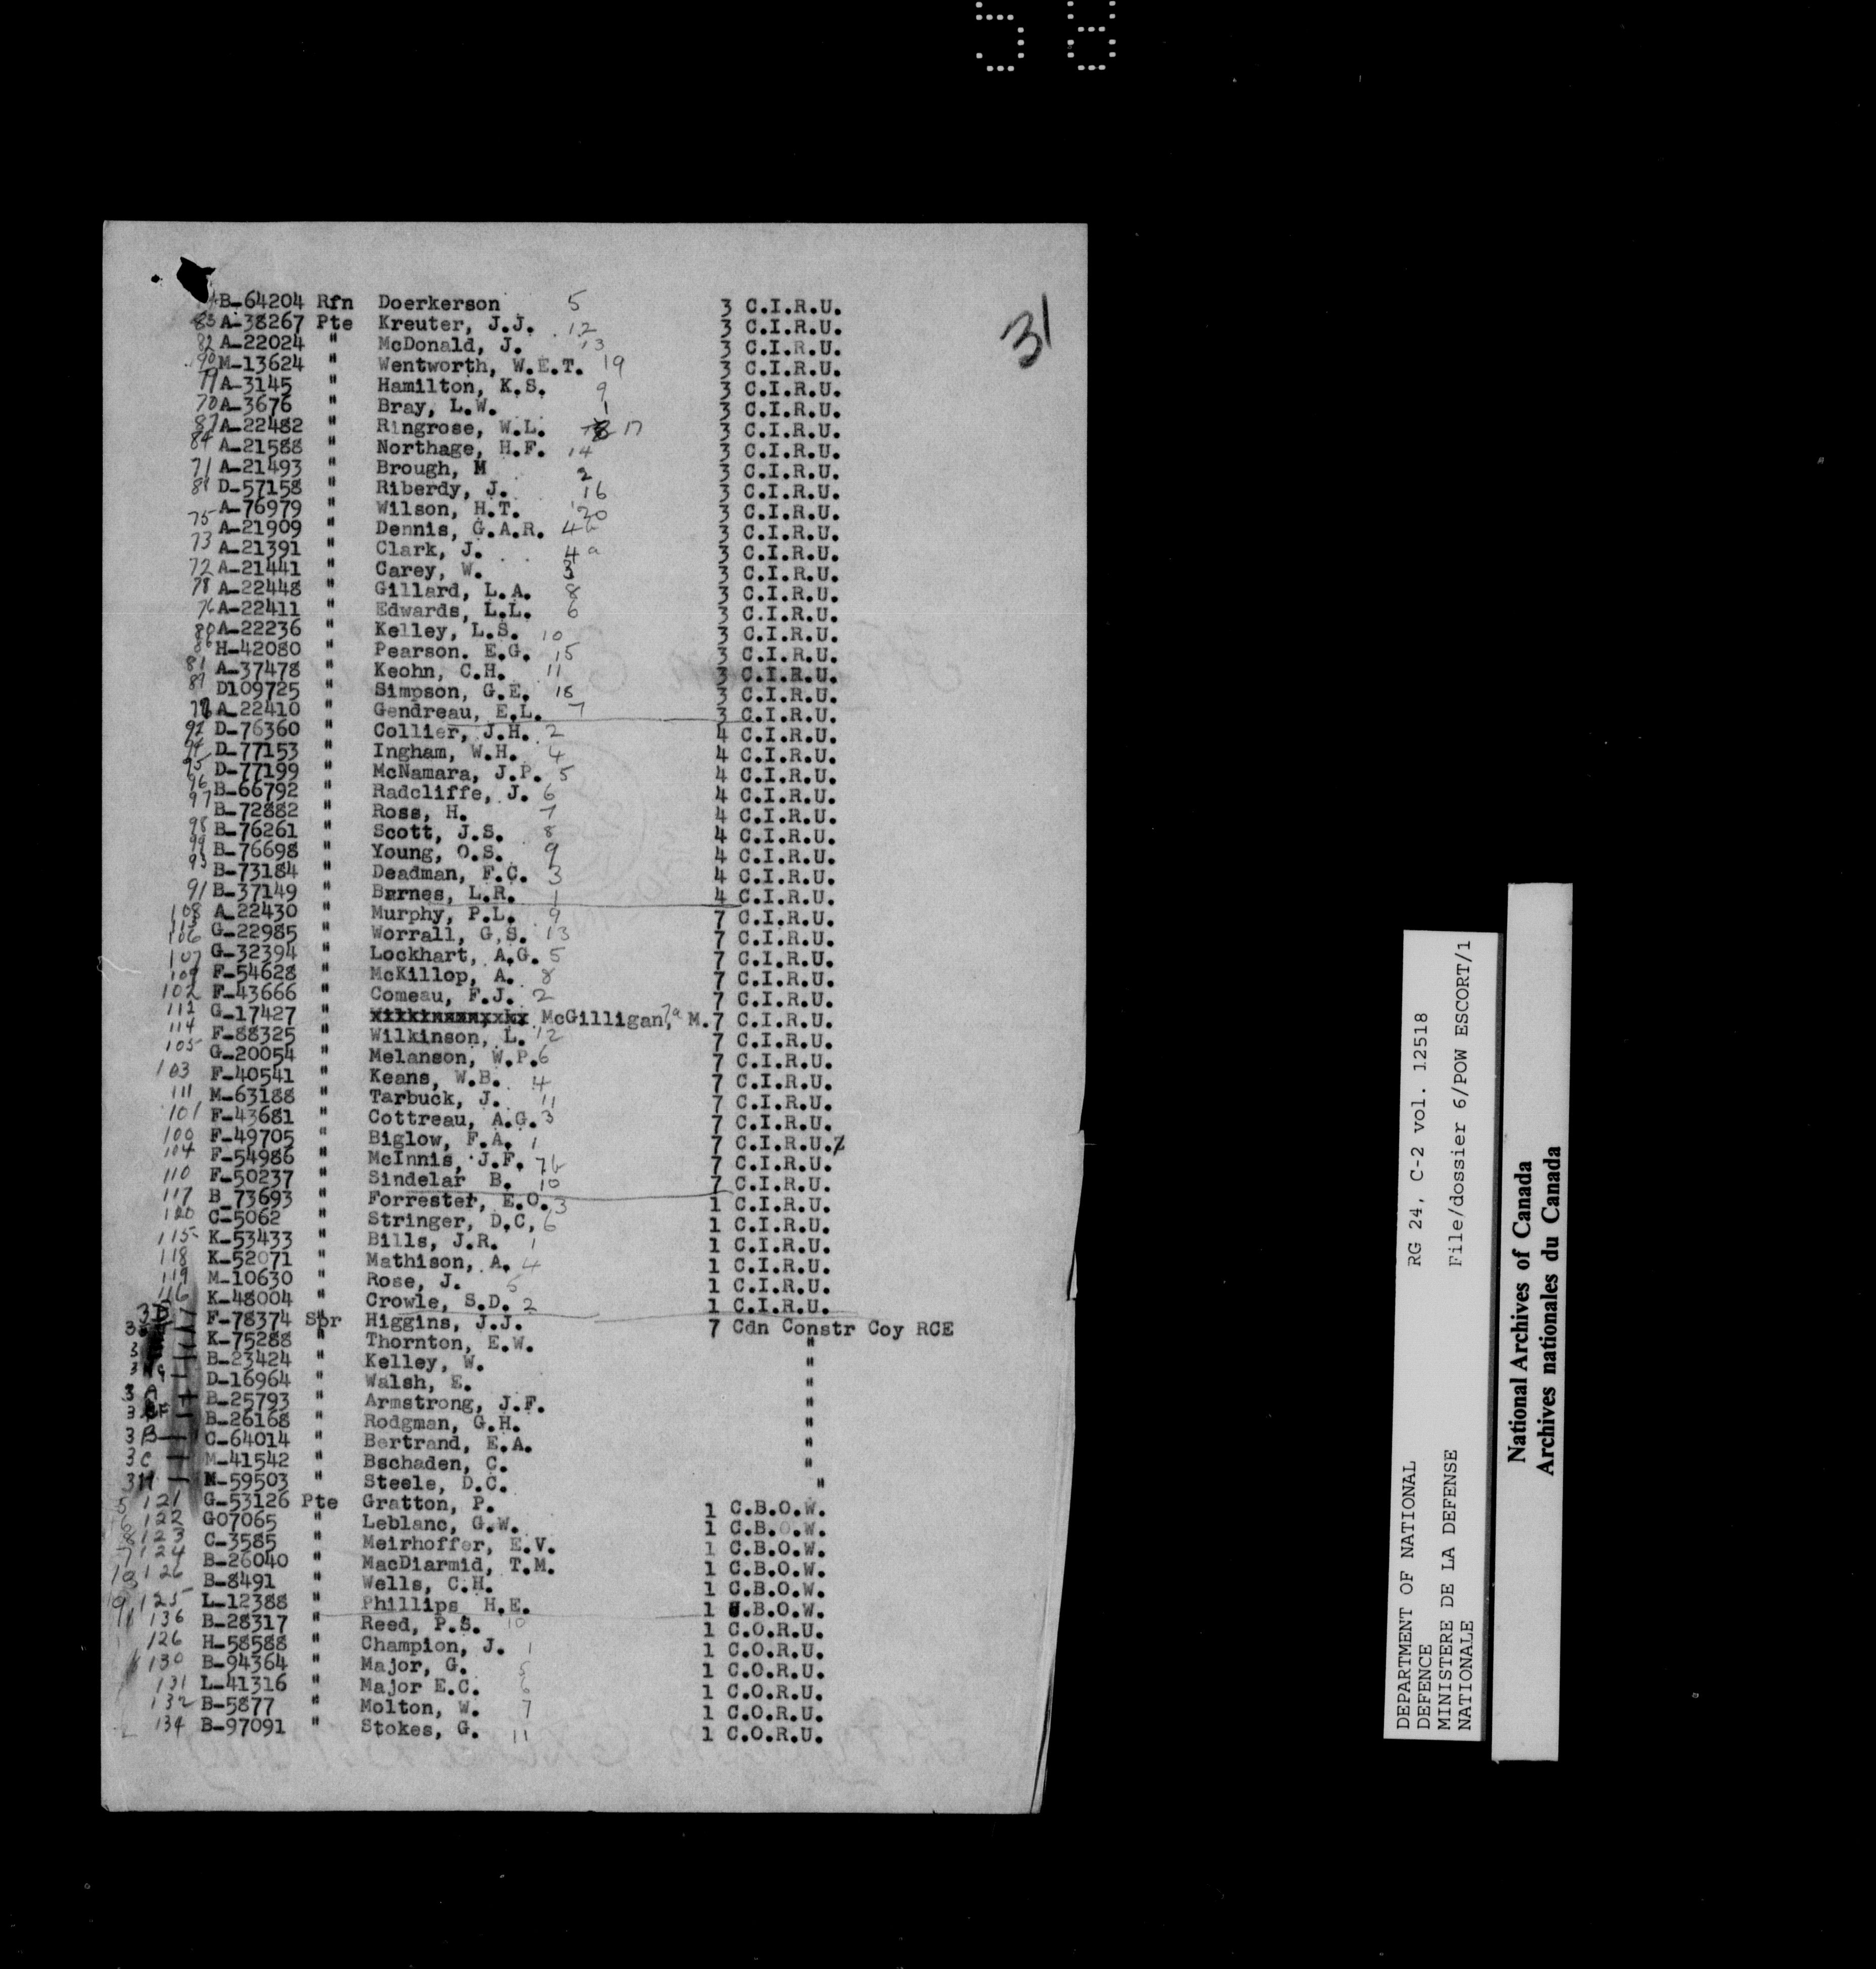 58
31
B-64204 Rfn Doerkerson 5 3 C.I.R.U.
83 A-38267 Pte Kreuter, J.J. 12 3 C.I.R.U.
82 A-22024 " McDonald, J. 13 3 C.I.R.U.
90 M-13624 " Wentworth, W.E.T. 19 3 C.I.R.U.
79 A-3145 " Hamilton, K.S. 9 3 C.I.R.U.
70 A-3676 " Bray, L.W. 1 3 C.I.R.U.
87 A-22482 " Ringrose, W.L. 17 3 C.I.R.U.
84 A-21588 " Northage, H.F. 14 3 C.I.R.U.
71 A-21493 " Brough, M 2 3 C.I.R.U.
D-57158 " Riberdy, J. 16 3 C.I.R.U.
A-76979 " Wilson, H.T. 20 3 C.I.R.U.
75 A-21909 " Dennis, G.A.R. 4b 3 C.I.R.U.
73 A-21391 " Clark, J. 4a 3 C.I.R.U.
72 A-21441 " Carey, W. 3 3 C.I.R.U.
78 A-22448 " Gillard, L.A. 8 3 C.I.R.U.
76 A-22411 " Edwards, L.L. 6 3 C.I.R.U.
80 A-22236 " Kelley, L.S. 10 3 C.I.R.U.
86 H-42080 " Pearson. E.G. 15 3 C.I.R.U.
81 A-37478 " Keohn, C.H. 11 3 C.I.R.U.
D109725 " Simpson, G.E. 18 3 C.I.R.U.
A-22410 " Gendreau, E.L. 7 3 C.I.R.U.
92 D-76360 " Collier, J.H. 2 4 C.I.R.U.
94 D-77153 " Ingham, W.H. 4 4 C.I.R.U.
95 D-77199 " McNamara, J.P. 5 4 C.I.R.U.
96 B-66792 " Radcliffe, J. 6 4 C.I.R.U.
97 B-72882 " Ross, H. 7 4 C.I.R.U.
98 B-76261 " Scott, J.S. 8 4 C.I.R.U.
99 B-76698 " Young, O.S. 9 4 C.I.R.U.
93 B-73184 " Deadman, F.C. 3 4 C.I.R.U.
91 B-37149 " Barnes, L.R. 1 4 C.I.R.U.
108 A-22430 " Murphy, P.L. 9 7 C.I.R.U.
113 G-22985 " Worrall, G.S. 13 7 C.I.R.U.
106 G-32394 " Lockhart, A.G. 5 7 C.I.R.U.
107 F-54628 " McKillop, A. 8 7 C.I.R.U.
109 F-43666 " Comeau, F.J. 2 7 C.I.R.U.
102 G-17427 " McGilligan, 7a M. 7 C.I.R.U.
112 F-88325 " Wilkinson, L. 12 7 C.I.R.U.
114 G-20054 " Melanson, W.P. 6 7 C.I.R.U.
105 F-40541 " Keans, W.B. 4 7 C.I.R.U.
103 M-63188 " Tarbuck, J. 11 7 C.I.R.U.
111 F-43681 " Cottreau, A.G. 3 7 C.I.R.U.
101 F-49705 " Biglow, F.A. 1 7 C.I.R.U.
100 F-54986 " McInnis, J.F. 7b 7 C.I.R.U.
104 F-50237 " Sindelar B. 10 7 C.I.R.U.
110
117 B 73693 " Forrester, E.O. 3 1 C.I.R.U.
120 C-5062 " Stringer, D.C, 6 1 C.I.R.U.
115 K-53433 " Bills, J.R. 1 1 C.I.R.U.
118 K-52071 " Mathison, A. 4 1 C.I.R.U.
119 M-10630 " Rose, J. 5 1 C.I.R.U.
116 K-48004 " Crowle, S.D. 2 1 C.I.R.U.
3D F-78374 Spr Higgins, J.J. 7 Cdn Constr Coy RCE
K-75288 " Thornton, E.W. "
B-23424 " Kelley, W. "
D-16964 " Walsh, E. "
3A B-25793 " Armstrong, J.F. "
B-26168 " Rodgman, G.H. "
3B C-64014 " Bertrand, E.A. "
3C M-41542 " Bschaden, C. "
3H M-59503 " Steele, D.C. "
121 G-53126 Pte Gratton, P. 1 C.B.O.W.
122 G07065 " Leblanc, G.W. 1 C.B.O.W.
123 C-3585 " Meirhoffer, E.V. 1 C.B.O.W.
124 B-26040 " MacDiarmid, T.M. 1 C.B.O.W.
126 B-8491 " Wells, C.H. 1 C.B.O.W.
125 L-12388 " Phillips H.E. 1 C.B.O.W.
136 B-28317 " Reed, P.S. 10 1 C.O.R.U.
126 H-58588 " Champion, J. 1 1 C.O.R.U.
130 B-94364 " Major, G. 5 1 C.O.R.U.
131 L-41316 " Major E.C. 6 1 C.O.R.U.
132 B-5877 " Molton, W. 7 1 C.O.R.U.
134 B-97091 " Stokes, G. 11 1 C.O.R.U.
DEPARTMENT OF NATIONAL DEFENCE RG 24, C-2 vol. 12518
MINISTERE DE LA DEFENSE NATIONALE File/dossier 6/POW ESCORT/1
National Archives of Canada
Archives nationales du Canada